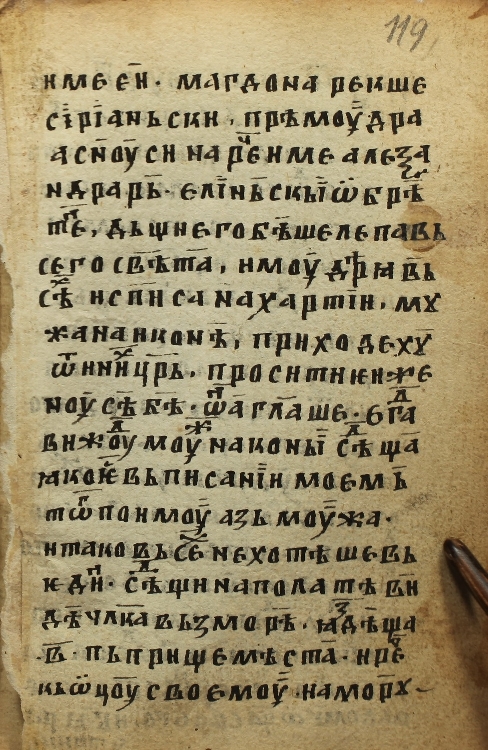 119
име ен҃и · магдона рекше
сїрїаньски · прѣмоудра
а сн҃оу си нарⷱ҇е име алеꙁа
ндрарь · елїньскыї ѡбрѣ
тⷫ҇е, дьщи его бѣше лепа вь
сего свѣта, и моудрѣꙗ вь
сѣⷯ и сп҃иса на хартїи, мѹ
жа на иконѣ, приходехѹ
ѿ ниниⷯ цр҃ь, просити ю и же
ноу себѣ · ѡⷩ҇а гл҃аше · егⷣа
вижⷣоу моуⷤ на конꙑ сѣⷣща
ꙗкоже вь писанїи моемь
тѡⷢ поимоу аꙁь моужа ·
и тако вьсеⷯ не хотѣше вь
ѥдⷩ҇и · сѣⷣщи на полатѣ ви
дѣ чл҃ка вьꙁморѣ · ꙗꙁⷣѣща
.в҃. пьприще мѣста · и рⷱ҇е
кь ѡц҃оу своемоу · на морѹ